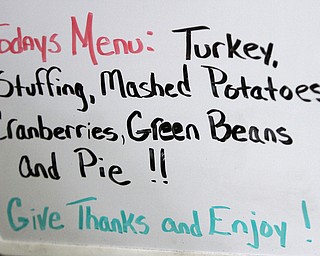 Todays Menu: Turkey,
Stuffing, Mashed Potatoes
Cranberries, Green Beans
and Pie !!
Give Thanks and Enjoy !